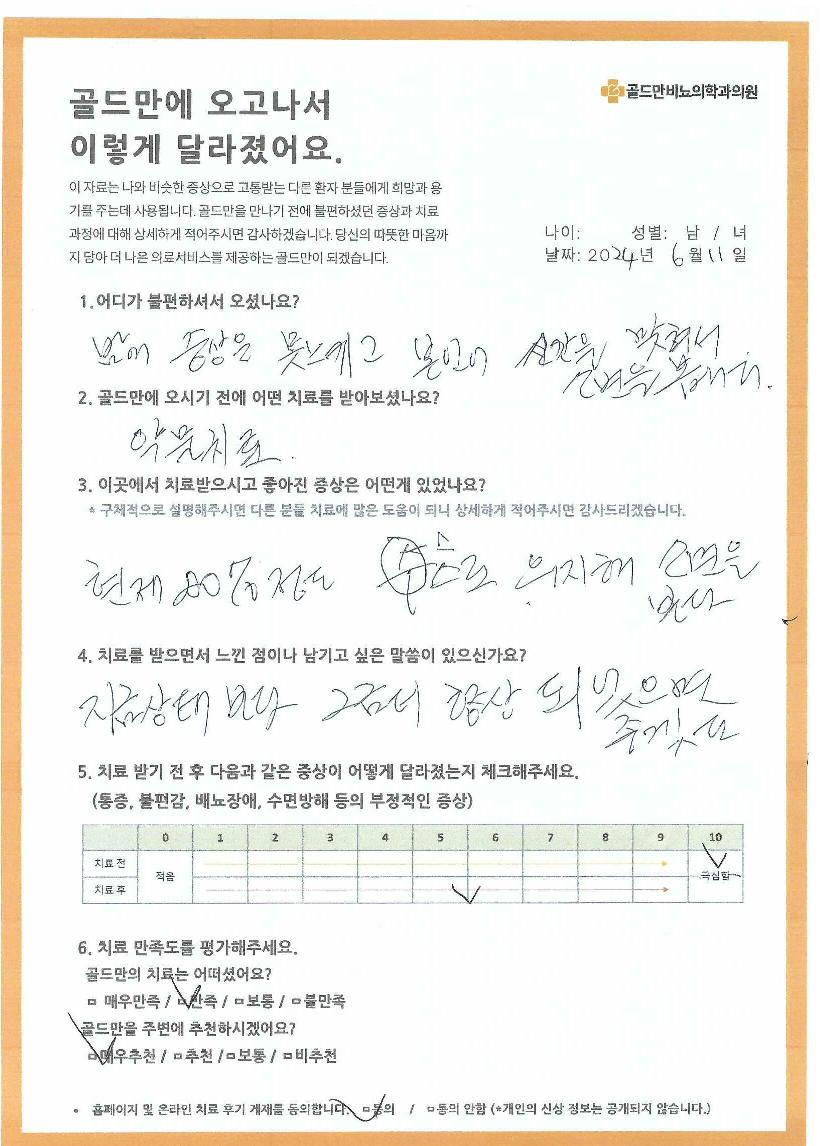 골드만비뇨의학과의원
골드만에 오고나서
이렇게 달라졌어요.
이 자료는 나와 비슷한 증상으로 고통받는 다른 환자 분들에게 희망과 용
기를 주는데 사용됩니다. 골드만을 만나기 전에 불편하셨던 증상과 치료
과정에 대해 상세하게 적어주시면 감사하겠습니다. 당신의 따뜻한 마음까
지 담아 더 나은 의료서비스를 제공하는 골드만이 되겠습니다.
나이: 성별: 남 / 녀
날짜: 2024년 6월 11일
1.어디가 불편하셔서 오셨나요?
밤에 증상은 못느께고 본인이 시간을 맞춰서
소변을 봅니다.
2. 골드만에 오시기 전에 어떤 치료를 받아보셨나요?
약물치료.
3. 이곳에서 치료받으시고 좋아진 증상은 어떤게 있었나요?
* 구체적으로 설명해주시면 다른 분들 치료에 많은 도움이 되니 상세하게 적어주시면 감사드리겠습니다.
현제 80% 정도 스스로 의지해 소변을
본다
4. 치료를 받으면서 느낀 점이나 남기고 싶은 말씀이 있으신가요?
지금상태 보다 조금더 향상 되
5. 치료 받기 전 후 다음과 같은 증상이 어떻게 달라졌는지 체크해주세요.
(통증, 불편감, 배뇨장애, 수면방해 등의 부정적인 증상)
0 1 2 3 4 5 6 7 8 9 10
치료 전 적음 극심함
치료 후
6. 치료 만족도를 평가해주세요.
골드만의 치료는 어떠셨어요?
□ 매우만족 / □만족 / □보통 / □불만족
골드만을 주변에 추천하시겠어요?
□매우추천 / □추천 /□보통 / □비추천
• 홈페이지 및 온라인 치료 후기 게재를 동의합니다. □동의 / □동의 안함 (*개인의 신상 정보는 공개되지 않습니다.)